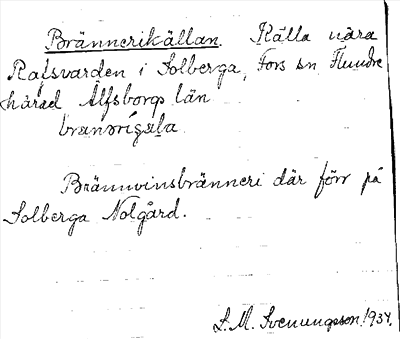 Brännerikällan. Källa nära
Rafsvarden i Solberga, Fors sn Flundre
härad Älfsborgs län

Brännvinsbränneri där förr på
Solberga Nolgård.
S. M. Svenungsson. 1934.